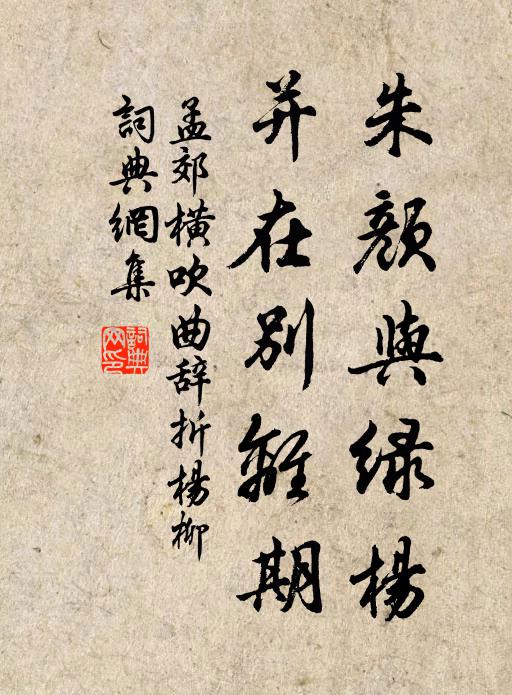 朱顏與绿楊
并在别離期
孟郊橫吹曲辞折楊柳
詞典網集
詞典網印